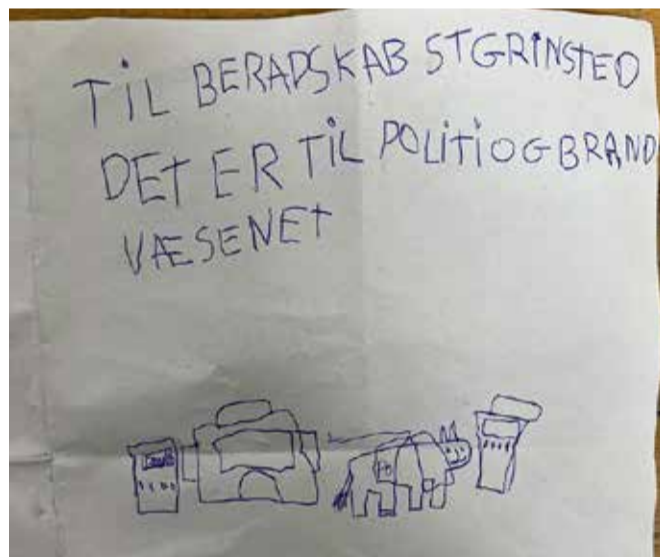 TIL BERADSKAB STGRINSTED
DET ER TIL POLITI OG BRAND
VÆSENET